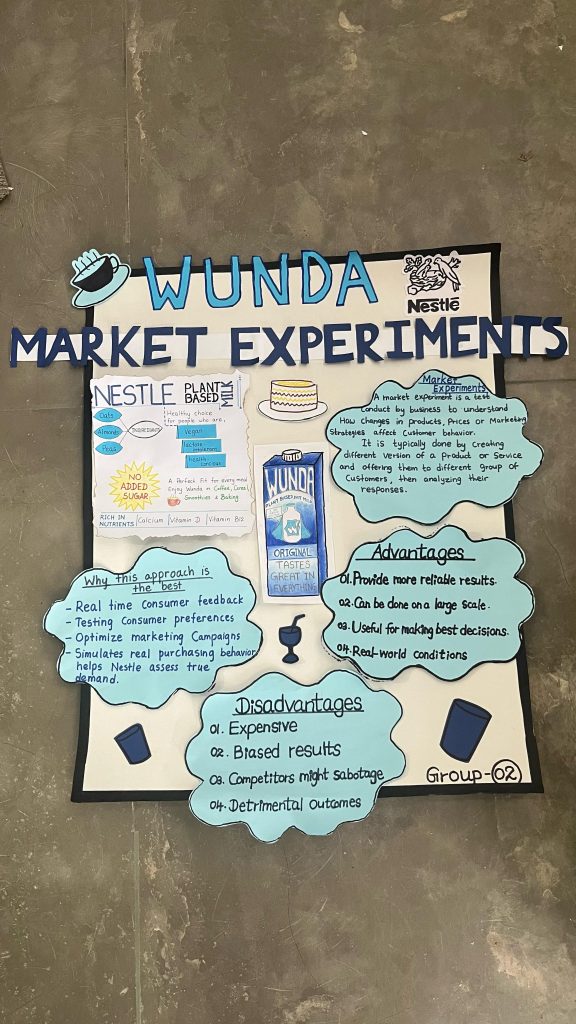 WUNDA
Nestlé
MARKET EXPERIMENTS
NESTLE PLANT BASED MILK
Oats
Almonds
Peas
INGREDIENTS
Healthy choice
for people who are,
Vegan
lactose
intolerant
health-
concious
NO
ADDED
SUGAR
A Perfect Fit for every meal
Enjoy Wunda in Coffee, Cereal
Smoothies & Baking
RICH IN
NUTRIENTS
Calcium
Vitamin D
Vitamin B12
Market
Experiments
A market experiment is a test
Conduct by business to understand
How changes in products, Prices or Marketing
Strategies affect Customer behavior.
It is typically done by creating
different Version of a Product or Service
and offering them to different group of
Customers, then analyzing their
responses.
WUNDA
PLANT BASED
MILK
ORIGINAL
TASTES
GREAT IN
EVERYTHING
Why this approach is
the best
- Real time Consumer feedback
- Testing Consumer preferences
- Optimize marketing Campaigns
- Simulates real purchasing behavior
helps Nestle assess true
demand.
Advantages
01. Provide more reliable results.
02. Can be done on a large scale.
03. Useful for making best decisions.
04. Real-world conditions
Disadvantages
01. Expensive
02. Biased results
03. Competitors might sabotage
04. Detrimental outcomes
Group-02